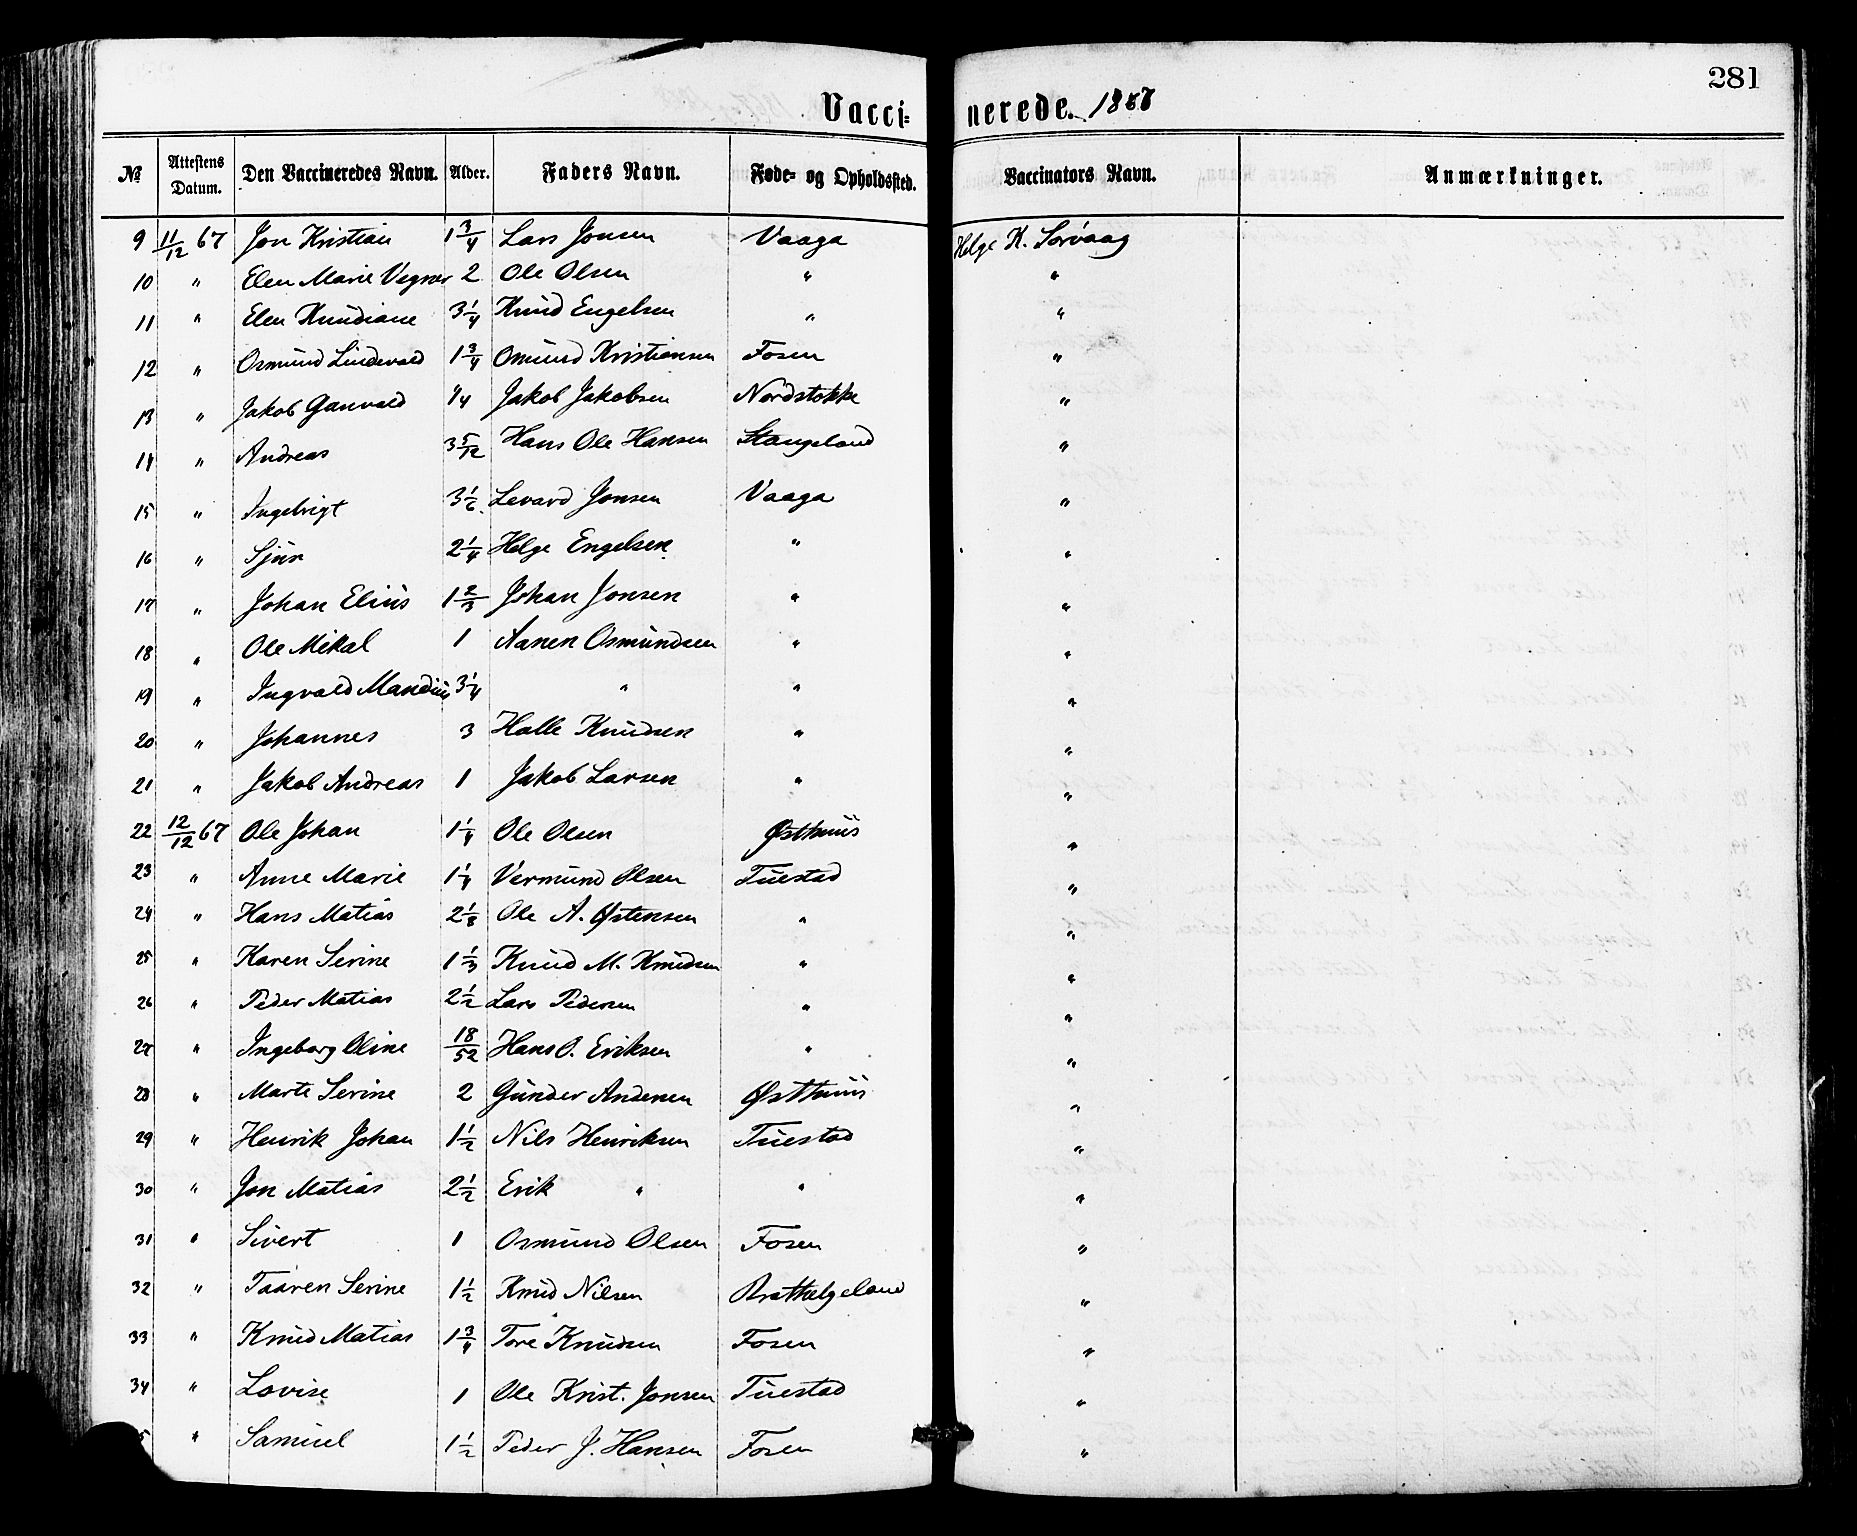 281
Vaccinerede. 1867
№ Attestens Datum. Den Vaccineredes Navn. Alder. Faders Navn. Føde- og Opholdssted. Vaccinators Navn. Anmærkninger.
9 11/12 67 Jon Kristian 1 3/4 Lars Jonsen Vaaga Helge K. Sørvaag
10 " Elen Marie Vegner 2 Ole Olsen " "
11 " Elen Knudiane 3 1/4 Knud Engelsen " "
12 " Osmund Lindevald 1 3/4 Omund Kristiansen Fosen "
13 " Jakob Ganvald 1/4 Jakob Jakobsen Nordstokke "
14 " Andreas 3 5/12 Hans Ole Hansen Stangeland "
15 " Ingebrigt 3 1/6 Levard Jonsen Vaaga "
16 " Sjur 2 1/4 Helge Engelsen " "
17 " Johan Elius 1 2/3 Johan Jonsen " "
18 " Ole Mikal 1 Aanen Osmundsen " "
19 " Ingvald Mandius 3 1/4 " " "
20 " Johannes 3 Halle Knudsen " "
21 " Jakob Andreas 1 Jakob Larsen " "
22 12/12 67 Ole Johan 1 1/4 Ole Olsen Østhuus "
23 " Anne Marie 1 1/4 Vermund Olsen Tuestad "
24 " Hans Matias 2 1/8 Ole A. Østensen " "
25 " Karen Serine 1 1/3 Knud M. Knudsen " "
26 " Peder Matias 2 1/2 Lars Pedersen " "
27 " Ingeborg Oline 18/52 Hans O. Eriksen " "
28 " Marte Serine 2 Gunder Andersen Østhuus "
29 " Henrik Johan 1 1/2 Nils Henriksen Tuestad "
30 " Jon Matias 2 1/2 Erik " " "
31 " Sivert 1 Osmund Olsen Fosen "
32 " Taaren Serine 1 1/2 Knud Nilsen Bratthelgeland "
33 " Knud Matias 1 3/4 Tore Knudsen Fosen "
34 " Lovise 1 Ole Krist. Jonsen Tuestad "
5 " Samuel 1 1/2 Peder J. Hansen Fosen "